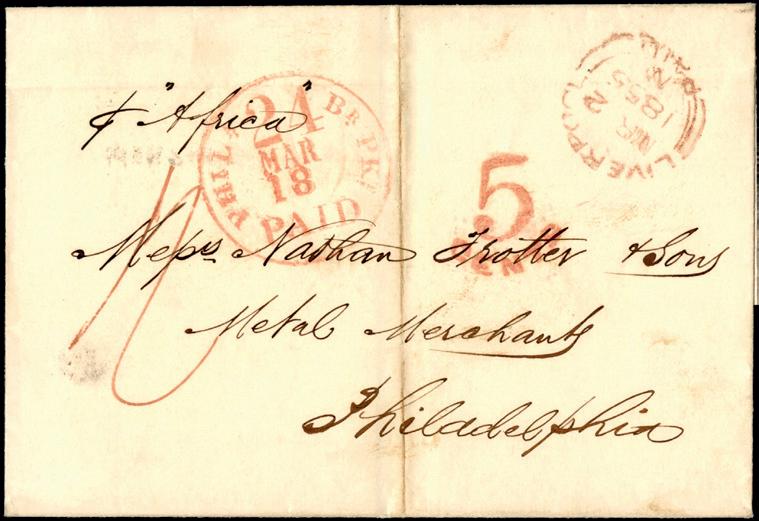 ℘ "Africa"
PHILA. BR. PKT.
24
MAR
18
PAID
LIVERPOOL
PAID
MR 2
1855
5
CENTS
Messrs Nathan Trotter & Sons
Metal Merchants
Philadelphia